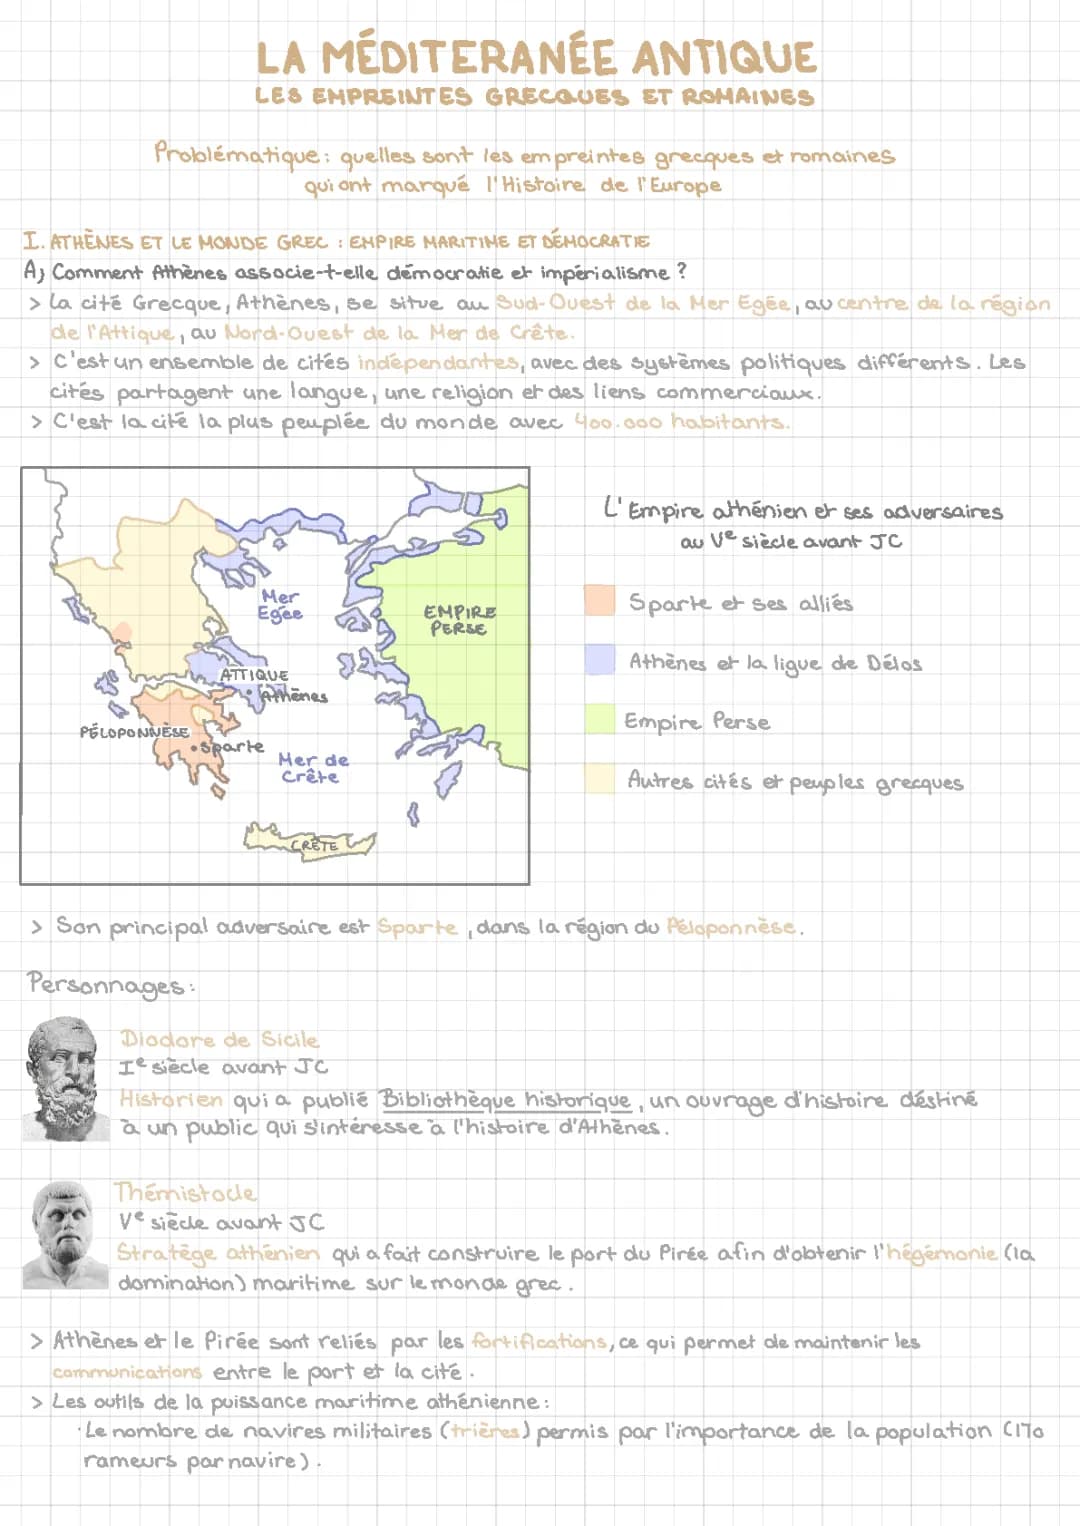 LA MÉDITERANÉE ANTIQUE
LES EMPREINTES GRECQUES ET ROMAINES
Problématique : quelles sont les empreintes grecques et romaines
qui ont marqué l'Histoire de l'Europe
I. ATHÈNES ET LE MONDE GREC : EMPIRE MARITIME ET DÉMOCRATIE
A) Comment Athènes associe-t-elle démocratie et impérialisme ?
> La cité Grecque, Athènes, se situe au Sud-Ouest de la Mer Egée, au centre de la région
de l'Attique, au Nord-Ouest de la Mer de Crête.
> C'est un ensemble de cités indépendantes, avec des systèmes politiques différents. Les
cités partagent une langue, une religion et des liens commerciaux.
> C'est la cité la plus peuplée du monde avec 400.000 habitants.
L'Empire athénien et ses adversaires
au Ve siècle avant JC
Mer
Egée
EMPIRE
PERSE
ATTIQUE
Athènes
PÉLOPONNÈSE
Sparte
Mer de
Crête
CRÊTE
Sparte et ses alliés
Athènes et la ligue de Délos
Empire Perse
Autres cités et peuples grecques
> Son principal adversaire est Sparte, dans la région du Péloponnèse.
Personnages :
Diodore de Sicile
Ie siècle avant JC
Historien qui a publié Bibliothèque historique, un ouvrage d'histoire déstiné
à un public qui s'intéresse à l'histoire d'Athènes.
Thémistocle
Ve siècle avant JC
Stratège athénien qui a fait construire le port du Pirée afin d'obtenir l'hégémonie (la
domination) maritime sur le monde grec.
> Athènes et le Pirée sont reliés par les fortifications, ce qui permet de maintenir les
communications entre le port et la cité.
> Les outils de la puissance maritime athénienne :
· Le nombre de navires militaires (trières) permis par l'importance de la population (170
rameurs par navire).